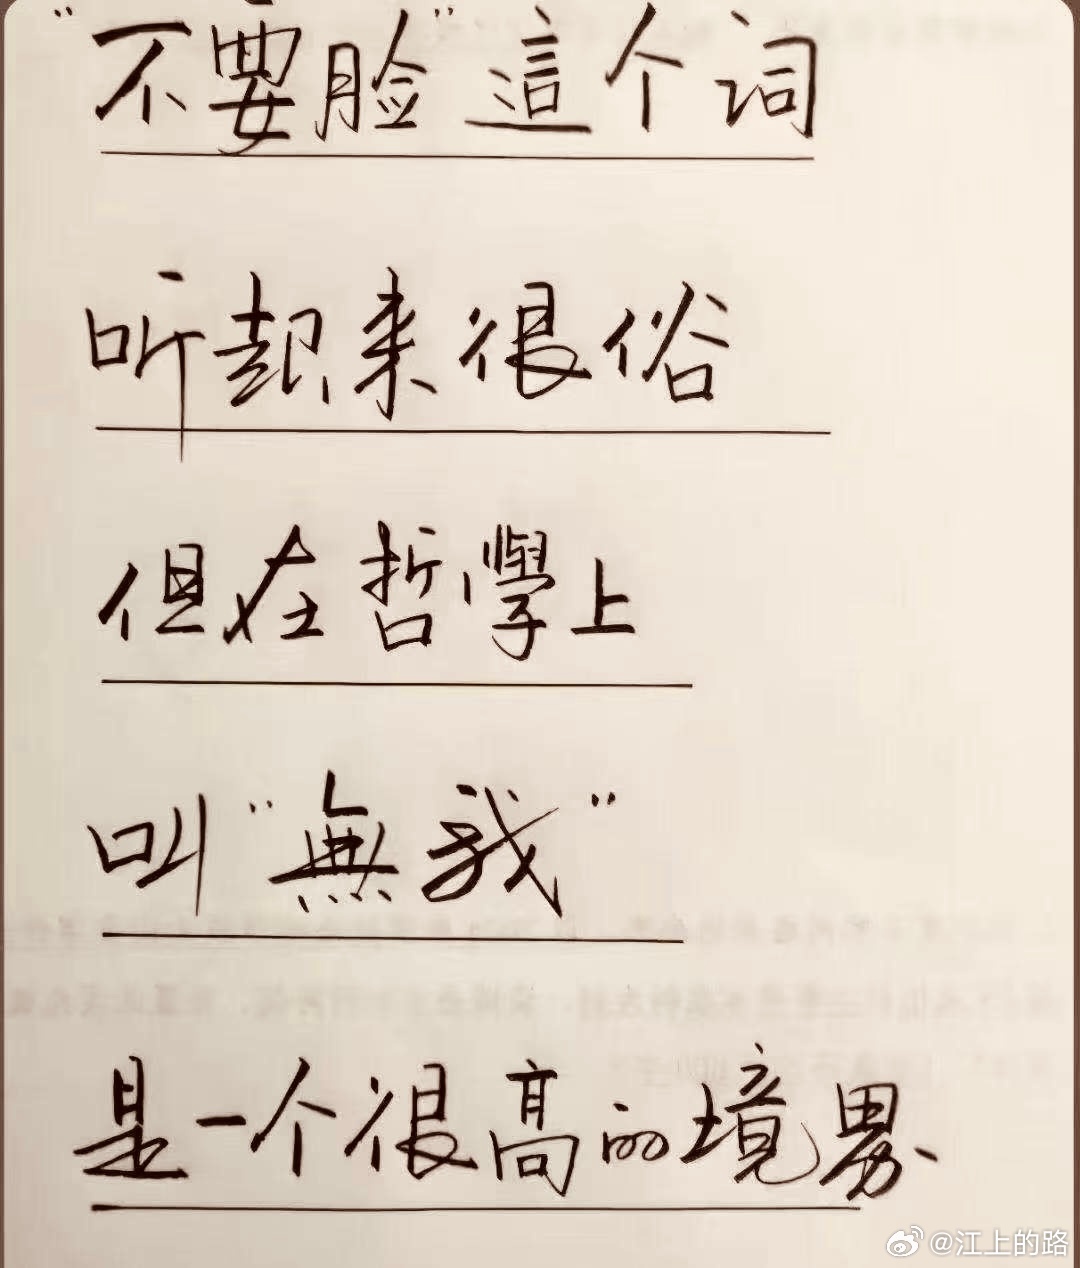 "不要脸"這个词
听起来很俗
但在哲學上
叫"無我"
是一个很高的境界、
@江上的路